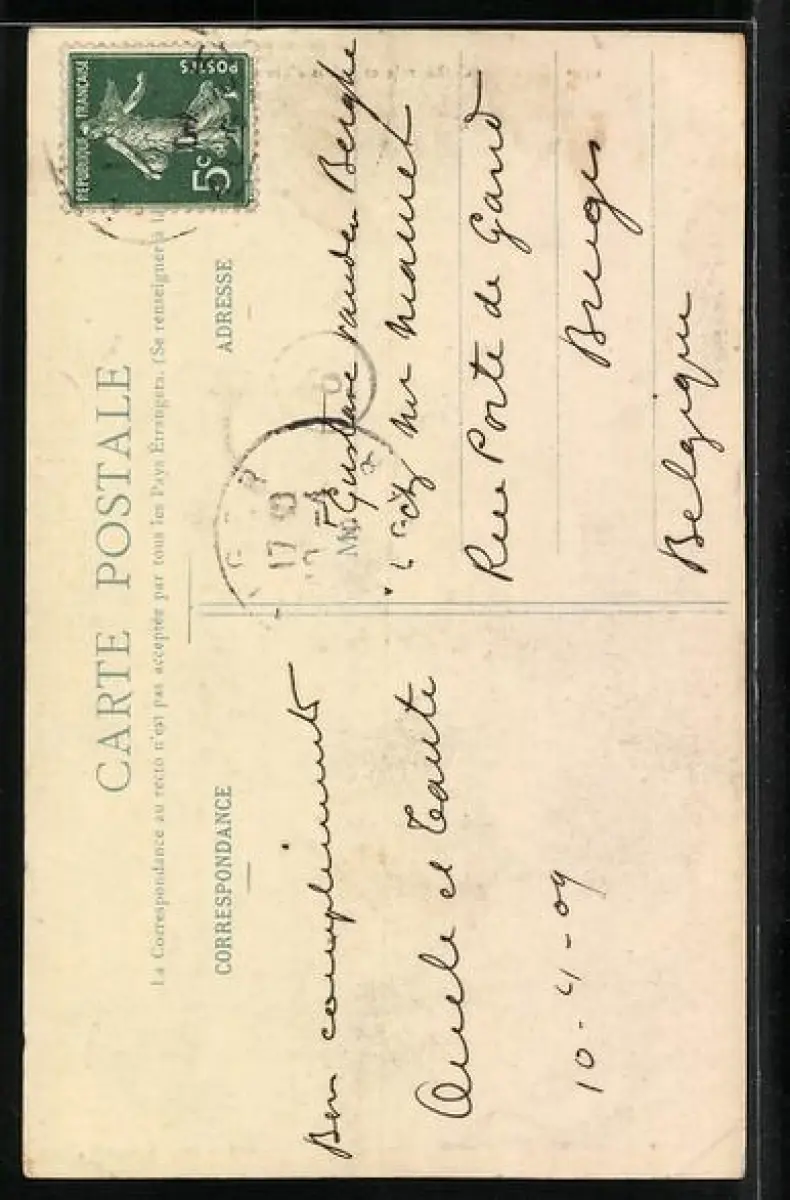 CARTE POSTALE
La Correspondance au recto n'est pas acceptée par tous les Pays Étrangers. (Se renseigner à la
CORRESPONDANCE
Bon compliments
Oncle et Tante
10-4-09
REPUBLIQUE FRANÇAISE
POSTES
5c
ADRESSE
17
M
Gustave vanden Berghe
Rue Porte de Gand
Bruges
Belgique